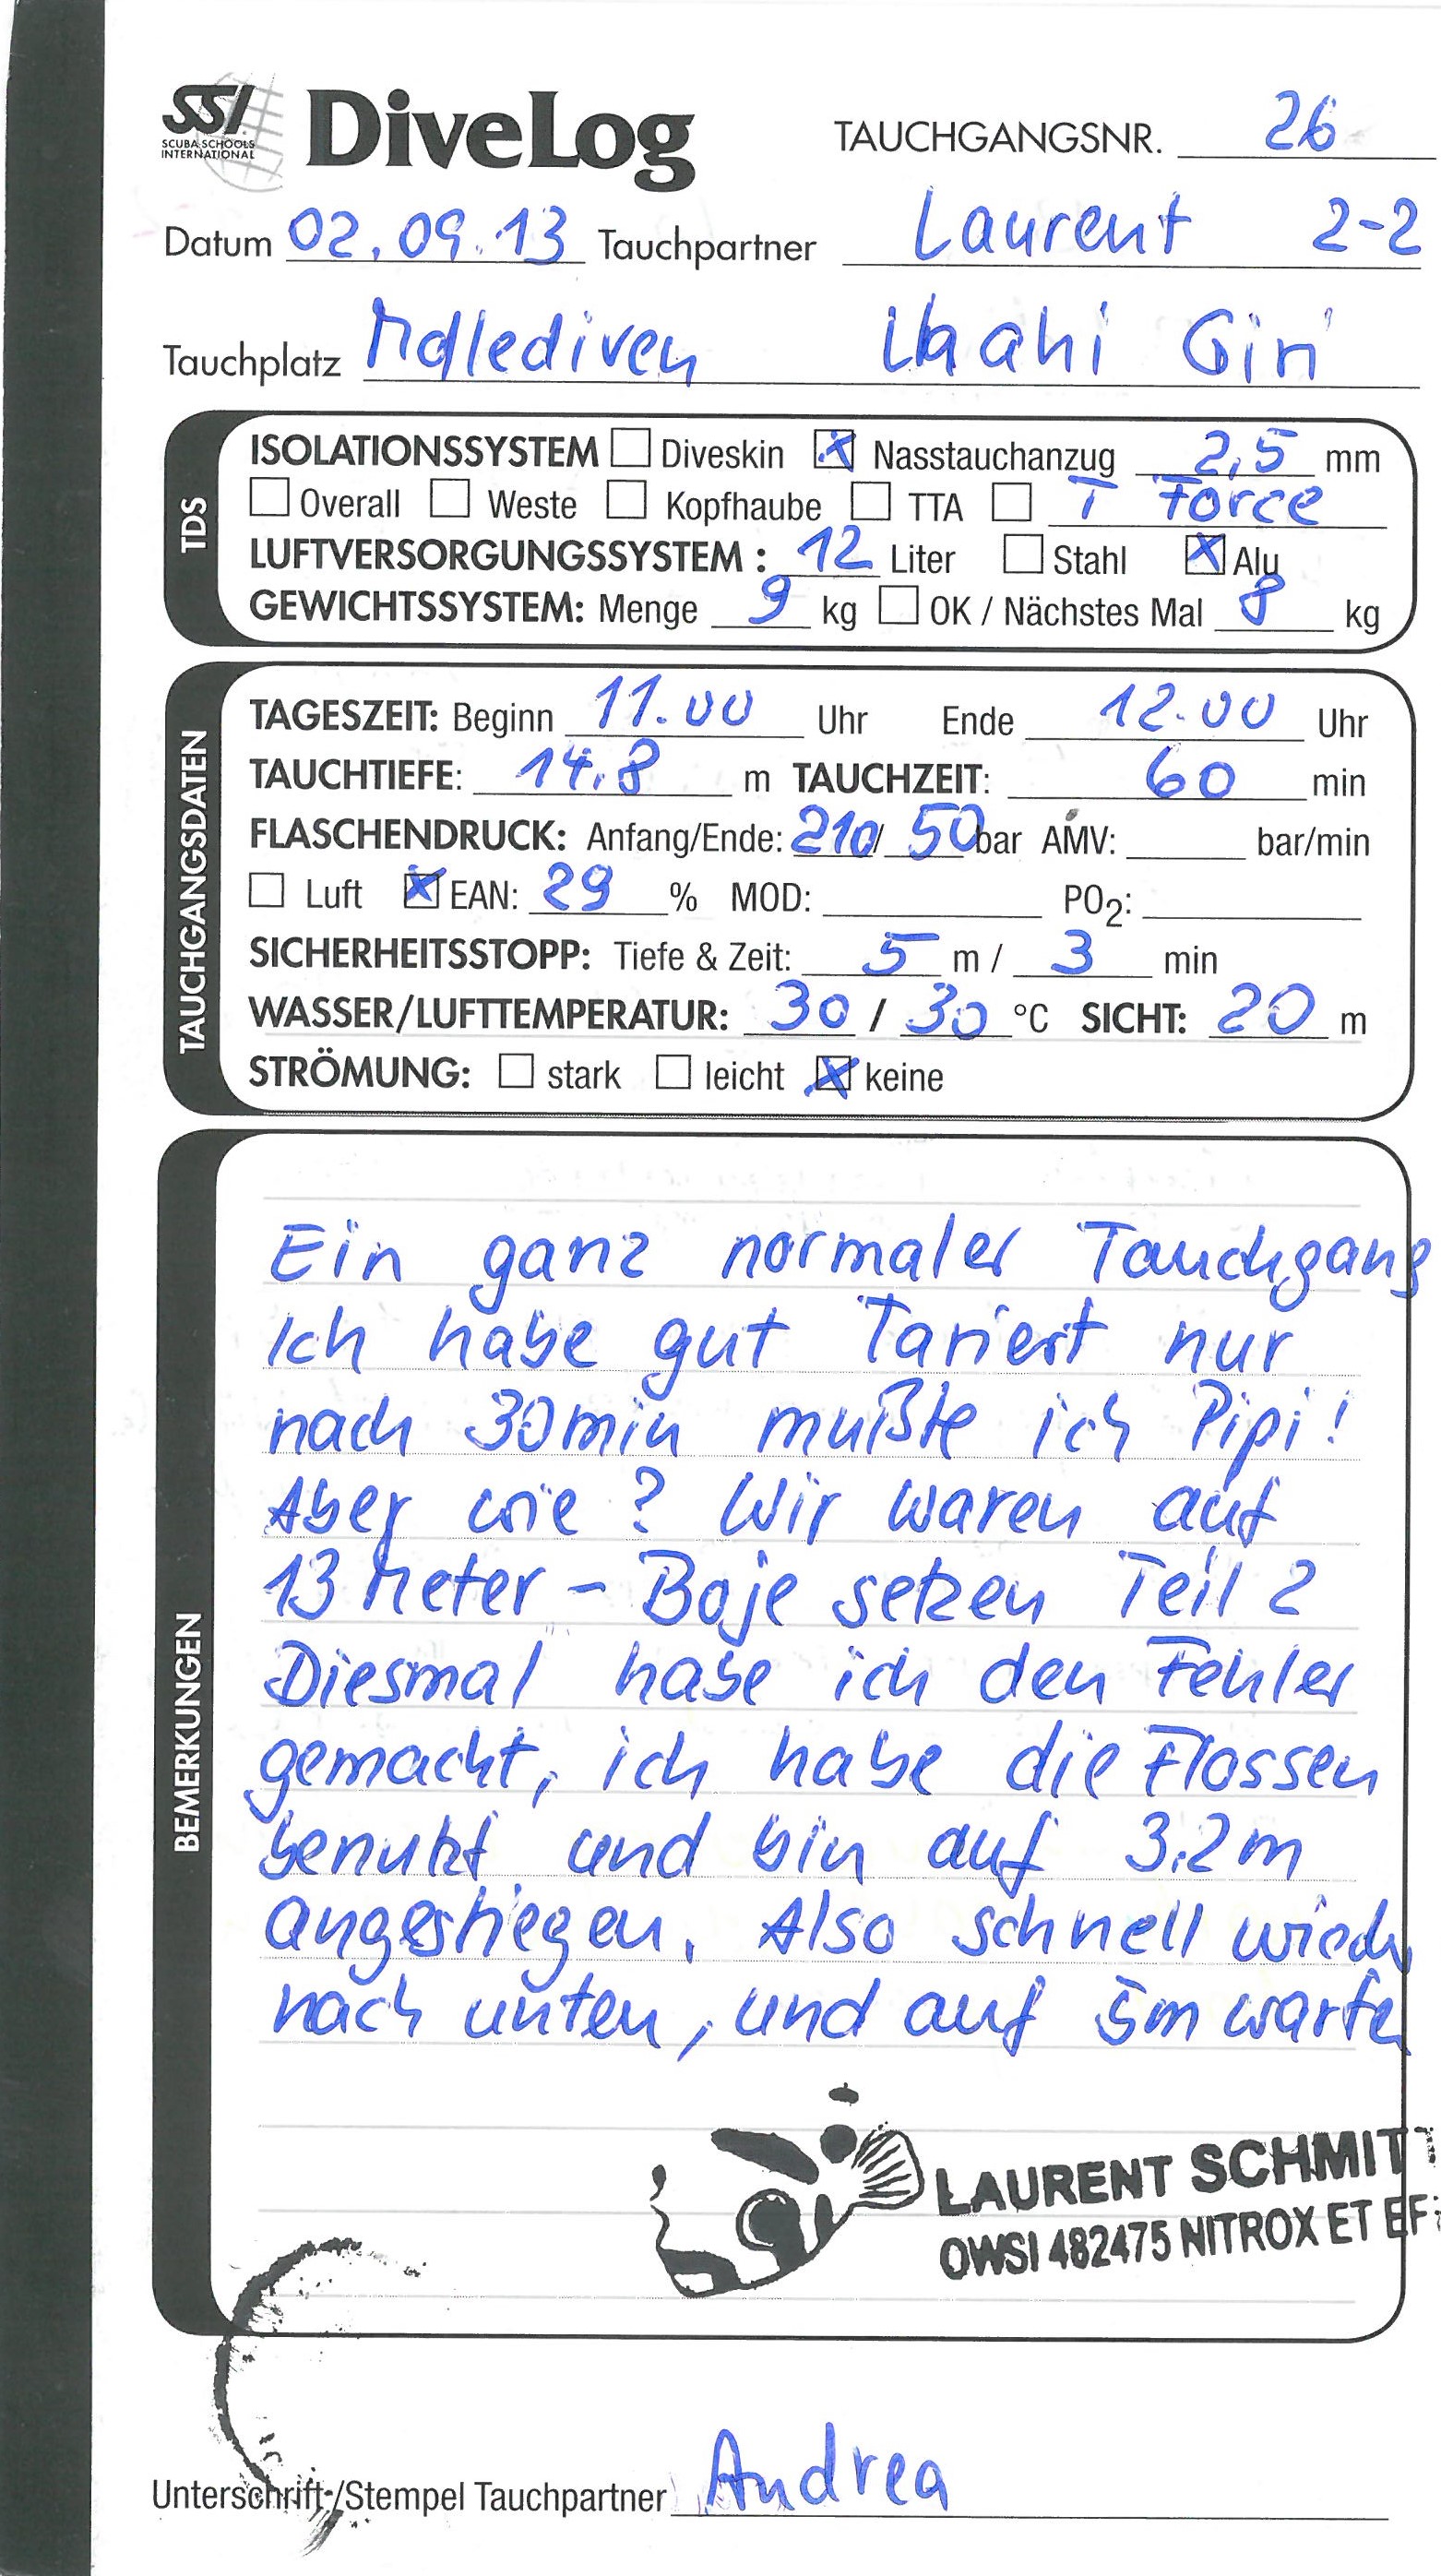 SSI
SCUBA SCHOOLS
INTERNATIONAL
DiveLog
TAUCHGANGSNR. 26
Datum 02.09.13 Tauchpartner Laurent 2-2
Tauchplatz Mallediven Giri
TDS
ISOLATIONSSYSTEM Diveskin X Nasstauchanzug 2,5 mm
Overall Weste Kopfhaube TTA T Force
LUFTVERSORGUNGSSYSTEM : 12 Liter Stahl X Alu
GEWICHTSSYSTEM: Menge 9 kg OK / Nächstes Mal 8 kg
TAUCHGANGSDATEN
TAGESZEIT: Beginn 11.00 Uhr Ende 12.00 Uhr
TAUCHTIEFE: 14,8 m TAUCHZEIT: 60 min
FLASCHENDRUCK: Anfang/Ende: 210/ 50 bar AMV: bar/min
Luft X EAN: 29 % MOD: PO2:
SICHERHEITSSTOPP: Tiefe & Zeit: 5 m / 3 min
WASSER/LUFTTEMPERATUR: 30 / 30 °C SICHT: 20 m
STRÖMUNG: stark leicht X keine
BEMERKUNGEN
Ein ganz normaler Tauchgang
Ich habe gut Tariert nur
nach 30min mußte ich Pipi!
Aber wie? Wir waren auf
13 Meter - Boje setzen Teil 2
Diesmal habe ich den Fehler
gemacht, ich habe die Flossen
benutzt und bin auf 3,2m
angestiegen. Also schnell wieder
nach unten, und auf 5m warten
LAURENT SCHMITT
OWSI 482475 NITROX ET EF
Unterschrift/Stempel Tauchpartner Andrea